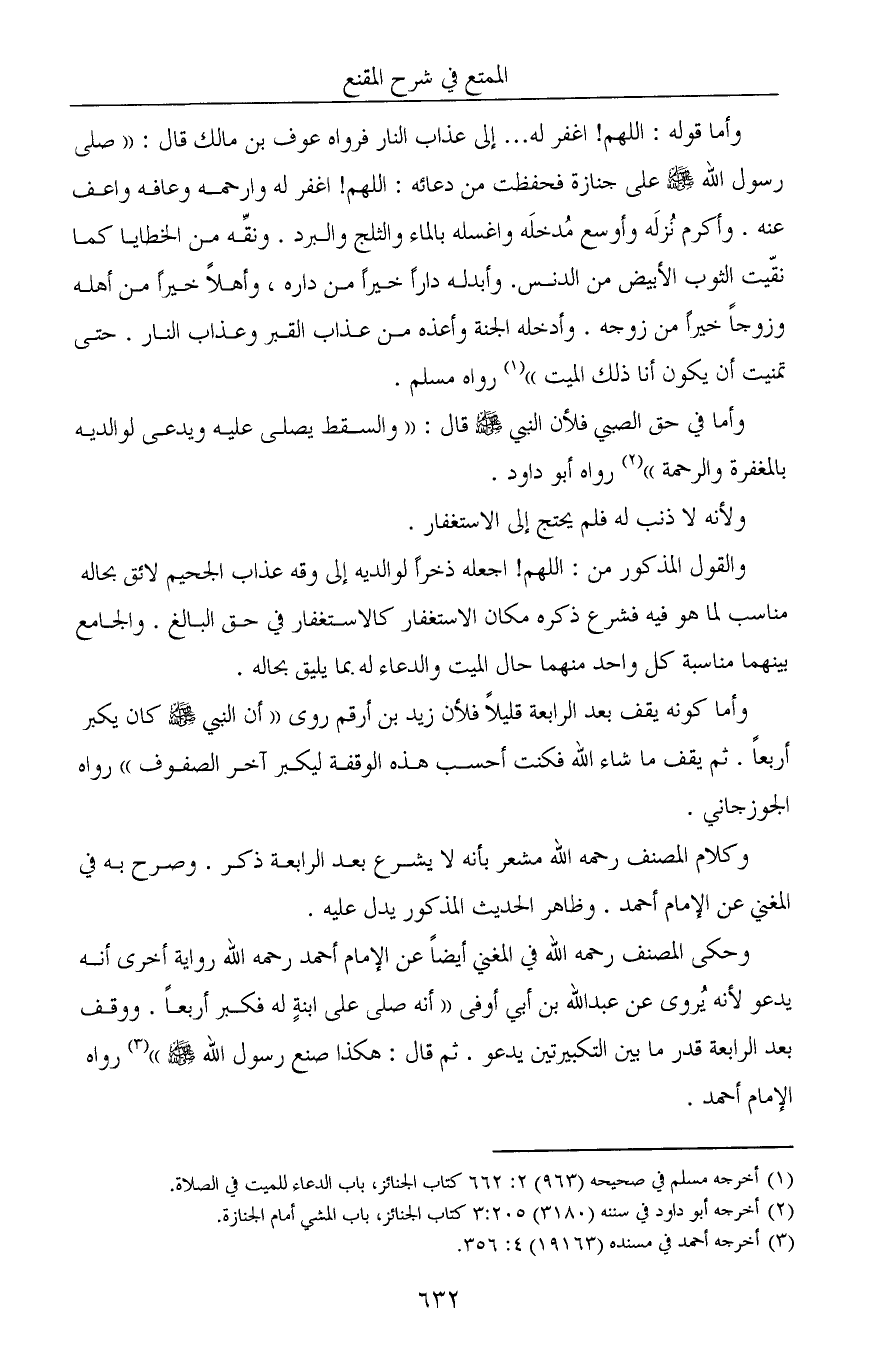 الممتع في شرح المقنع
وأما قوله : اللهم! اغفر له... إلى عذاب النار فرواه عوف بن مالك قال : (( صلى
رسول الله ﷺ على جنازة فحفظت من دعائه : اللهم! اغفر له وارحمه وعافه واعف
عنه . وأكرم نُزلَه وأوسع مُدخلَه واغسله بالماء والثلج والبرد . ونقِّه من الخطايا كما
نقّيت الثوب الأبيض من الدنس. وأبدله داراً خيراً من داره ، وأهلاً خيراً من أهله
وزوجاً خيراً من زوجه . وأدخله الجنة وأعذه من عذاب القبر وعذاب النار . حتى
تمنيت أن يكون أنا ذلك الميت ))(١) رواه مسلم .
وأما في حق الصبي فلأن النبي ﷺ قال : (( والسقط يصلى عليه ويدعى لوالديه
بالمغفرة والرحمة ))(٢) رواه أبو داود .
ولأنه لا ذنب له فلم يحتج إلى الاستغفار .
والقول المذكور من : اللهم! اجعله ذخراً لوالديه إلى وقه عذاب الجحيم لائق بحاله
مناسب لما هو فيه فشرع ذكره مكان الاستغفار كالاستغفار في حق البالغ . والجامع
بينهما مناسبة كل واحد منهما حال الميت والدعاء له بما يليق بحاله .
وأما كونه يقف بعد الرابعة قليلاً فلأن زيد بن أرقم روى (( أن النبي ﷺ كان يكبر
أربعاً . ثم يقف ما شاء الله فكنت أحسب هذه الوقفة ليكبر آخر الصفوف )) رواه
الجوزجاني .
وكلام المصنف رحمه الله مشعر بأنه لا يشرع بعد الرابعة ذكر . وصرح به في
المغني عن الإمام أحمد . وظاهر الحديث المذكور يدل عليه .
وحكى المصنف رحمه الله في المغني أيضاً عن الإمام أحمد رحمه الله رواية أخرى أنه
يدعو لأنه يُروى عن عبدالله بن أبي أوفى (( أنه صلى على ابنةٍ له فكبر أربعاً . ووقف
بعد الرابعة قدر ما بين التكبيرتين يدعو . ثم قال : هكذا صنع رسول الله ﷺ ))(٣) رواه
الإمام أحمد .
(١) أخرجه مسلم في صحيحه (٩٦٣) ٢: ٦٦٢ كتاب الجنائز، باب الدعاء للميت في الصلاة.
(٢) أخرجه أبو داود في سننه (٣١٨٠) ٣:٢٠٥ كتاب الجنائز، باب المشي أمام الجنازة.
(٣) أخرجه أحمد في مسنده (١٩١٦٣) ٤: ٣٥٦.
٦٣٢